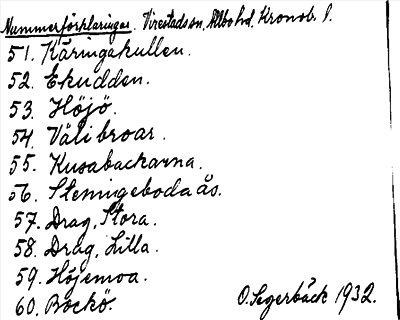 Nummerförklaringar. Virestads sn. Allbo hd. Kronob. l.
51. Käringakullen.
52. Ekudden.
53. Höjö.
54. Välibroar.
55. Kusabackarna.
56. Stenningeboda ås.
57. Drag, Stora.
58. Drag, Lilla.
59. Höjemoa.
60. Bockö.
O. Segerbäck 1932.